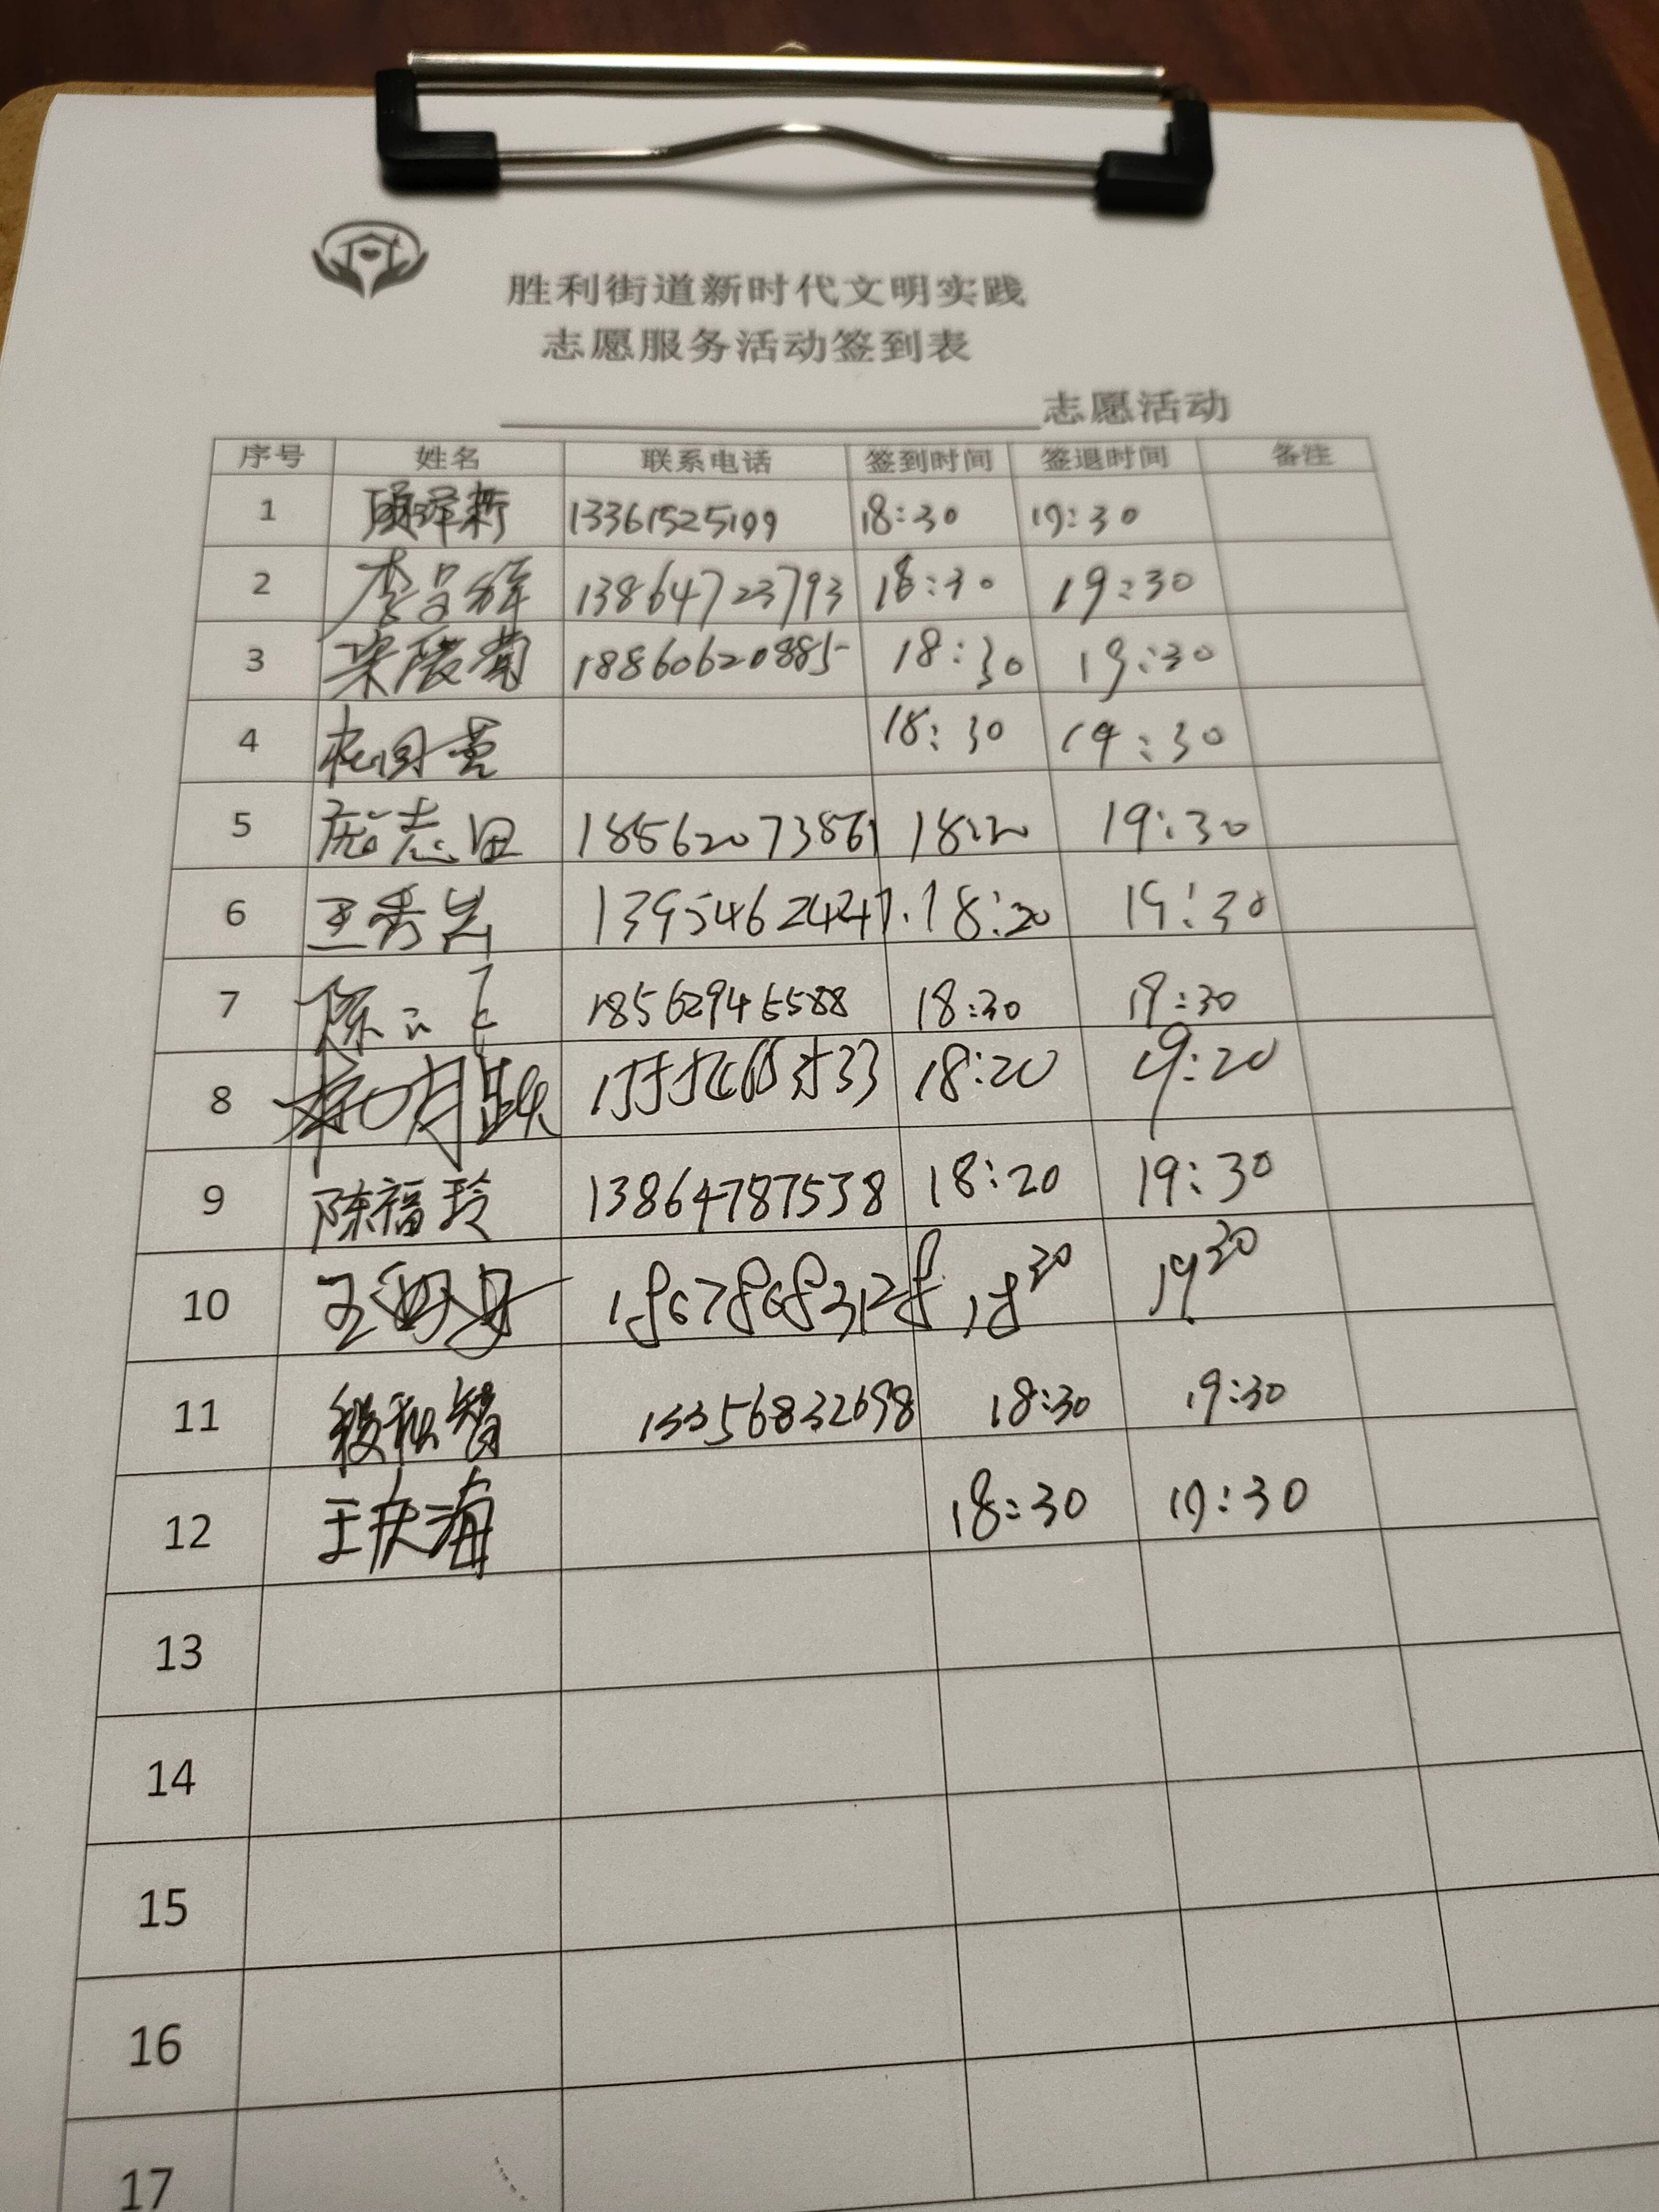 胜利街道新时代文明实践
志愿服务活动签到表
志愿活动
序号 姓名 联系电话 签到时间 签退时间 备注
1 13361525199 18:30 19:30
2 13864723793 18:30 19:30
3 18860620885 18:30 19:30
4 18:30 19:30
5 庞志田 18562073861 18:20 19:30
6 王秀岩 13954624247 18:20 19:30
7 陈云飞 18562946588 18:30 19:30
8 18:20 19:20
9 陈福玲 13864787538 18:20 19:30
10 18678683128 18 30 19 30
11 13356832698 18:30 19:30
12 王庆海 18:30 19:30
13
14
15
16
17